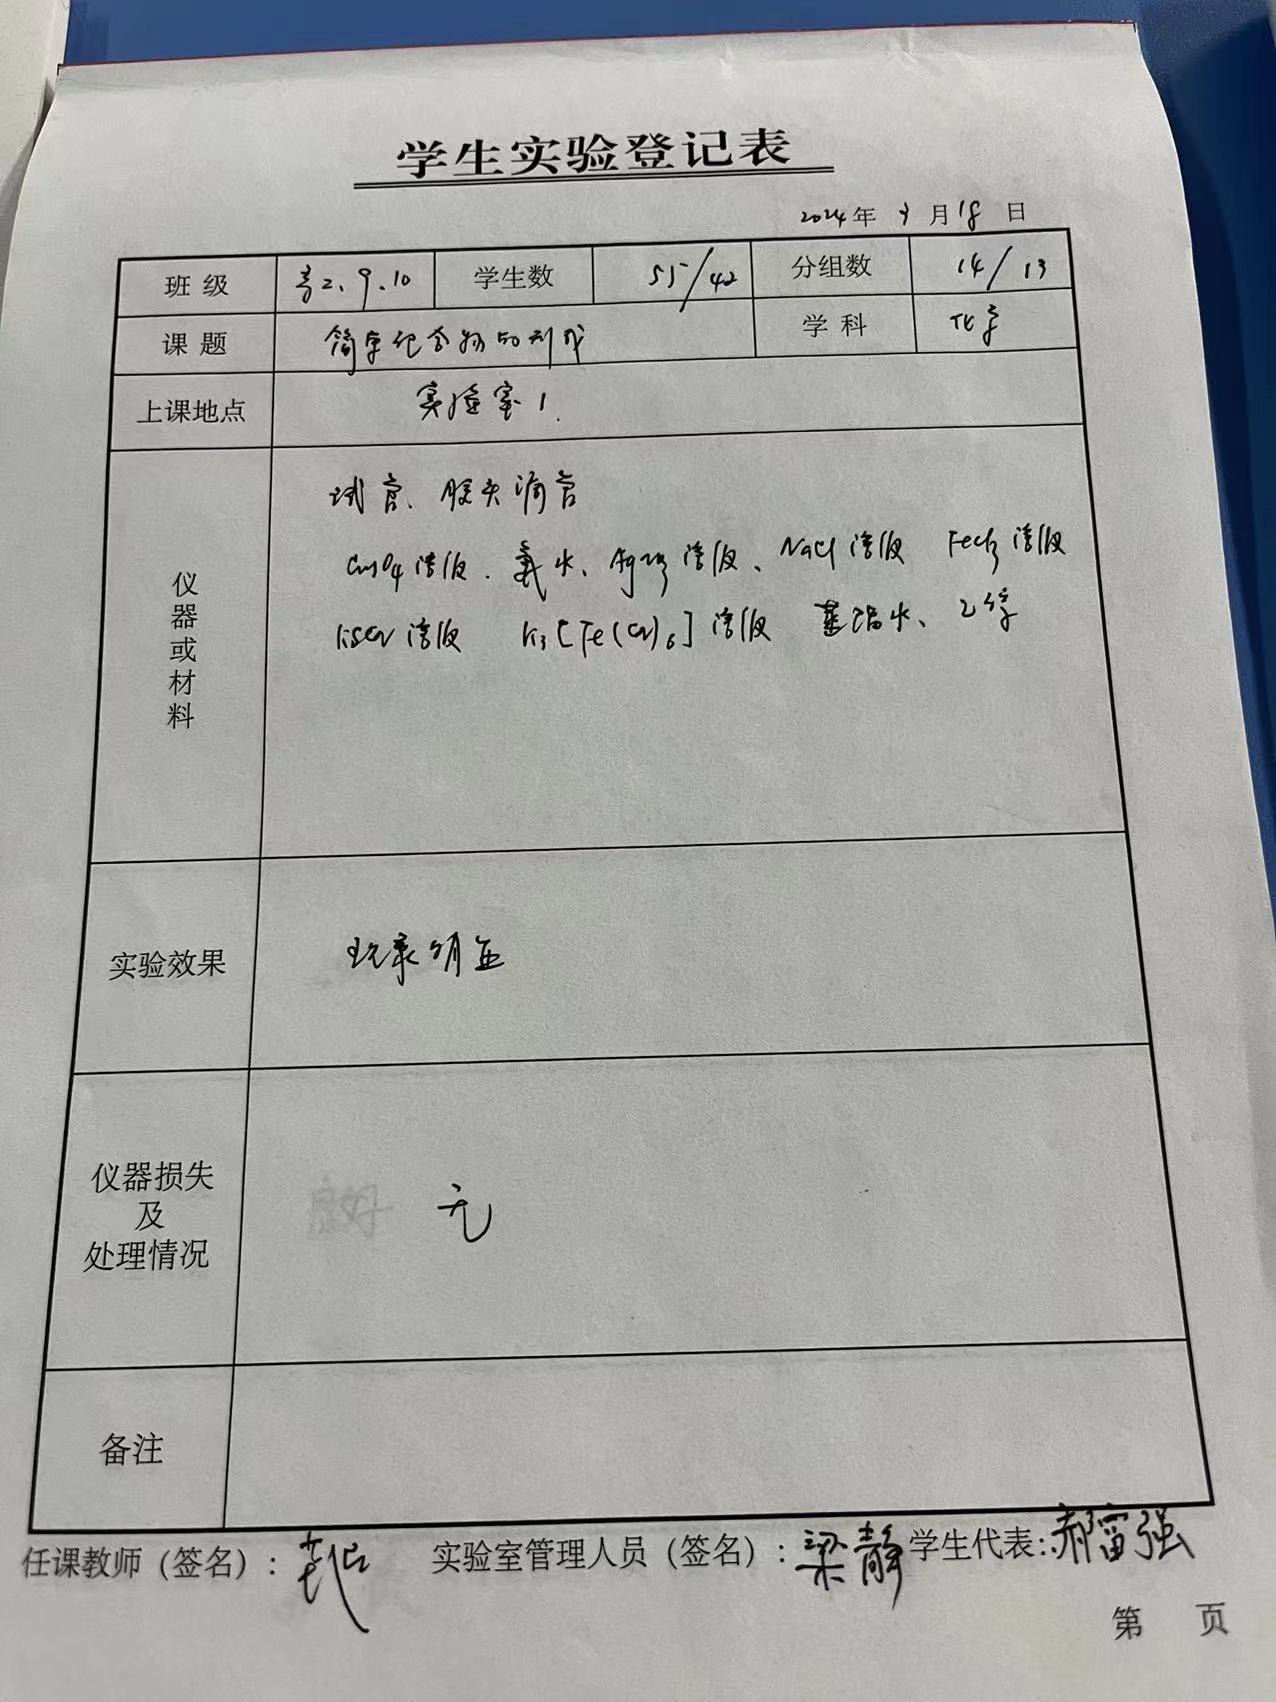 学生实验登记表
2024年 3月18日
班级 高二、9、10 学生数 55/42 分组数 14/13
课题 简单配合物的形成 学科 化学
上课地点 实验室1.
仪器或材料
试管、胶头滴管
CuSO4溶液、氨水、AgNO3溶液、NaCl溶液 FeCl3溶液
KSCN溶液 K3[Fe(CN)6]溶液 蒸馏水、乙醇
实验效果 现象明显
仪器损失
及
处理情况
无
备注
任课教师（签名）: 实验室管理人员（签名）: 梁静 学生代表: 郝富强
第 页